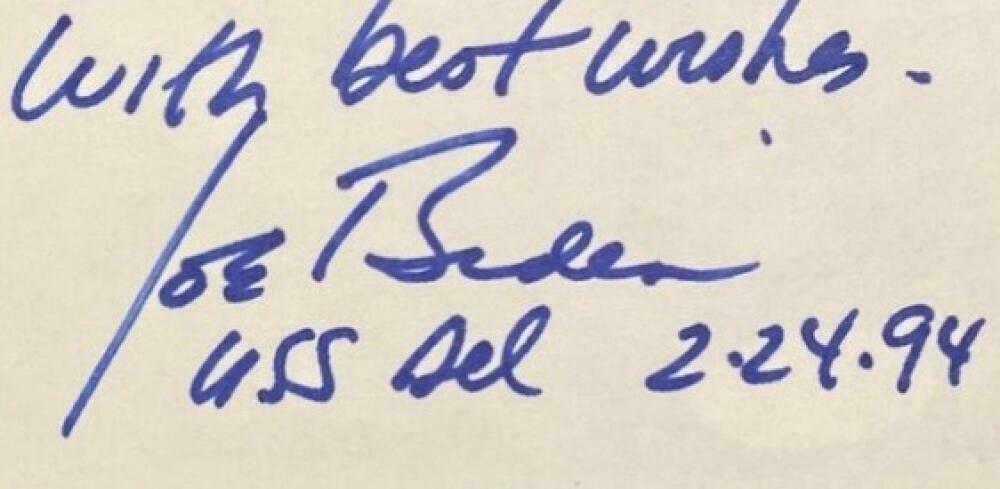 With best wishes.
Joe Biden
USS Del 2.24.94